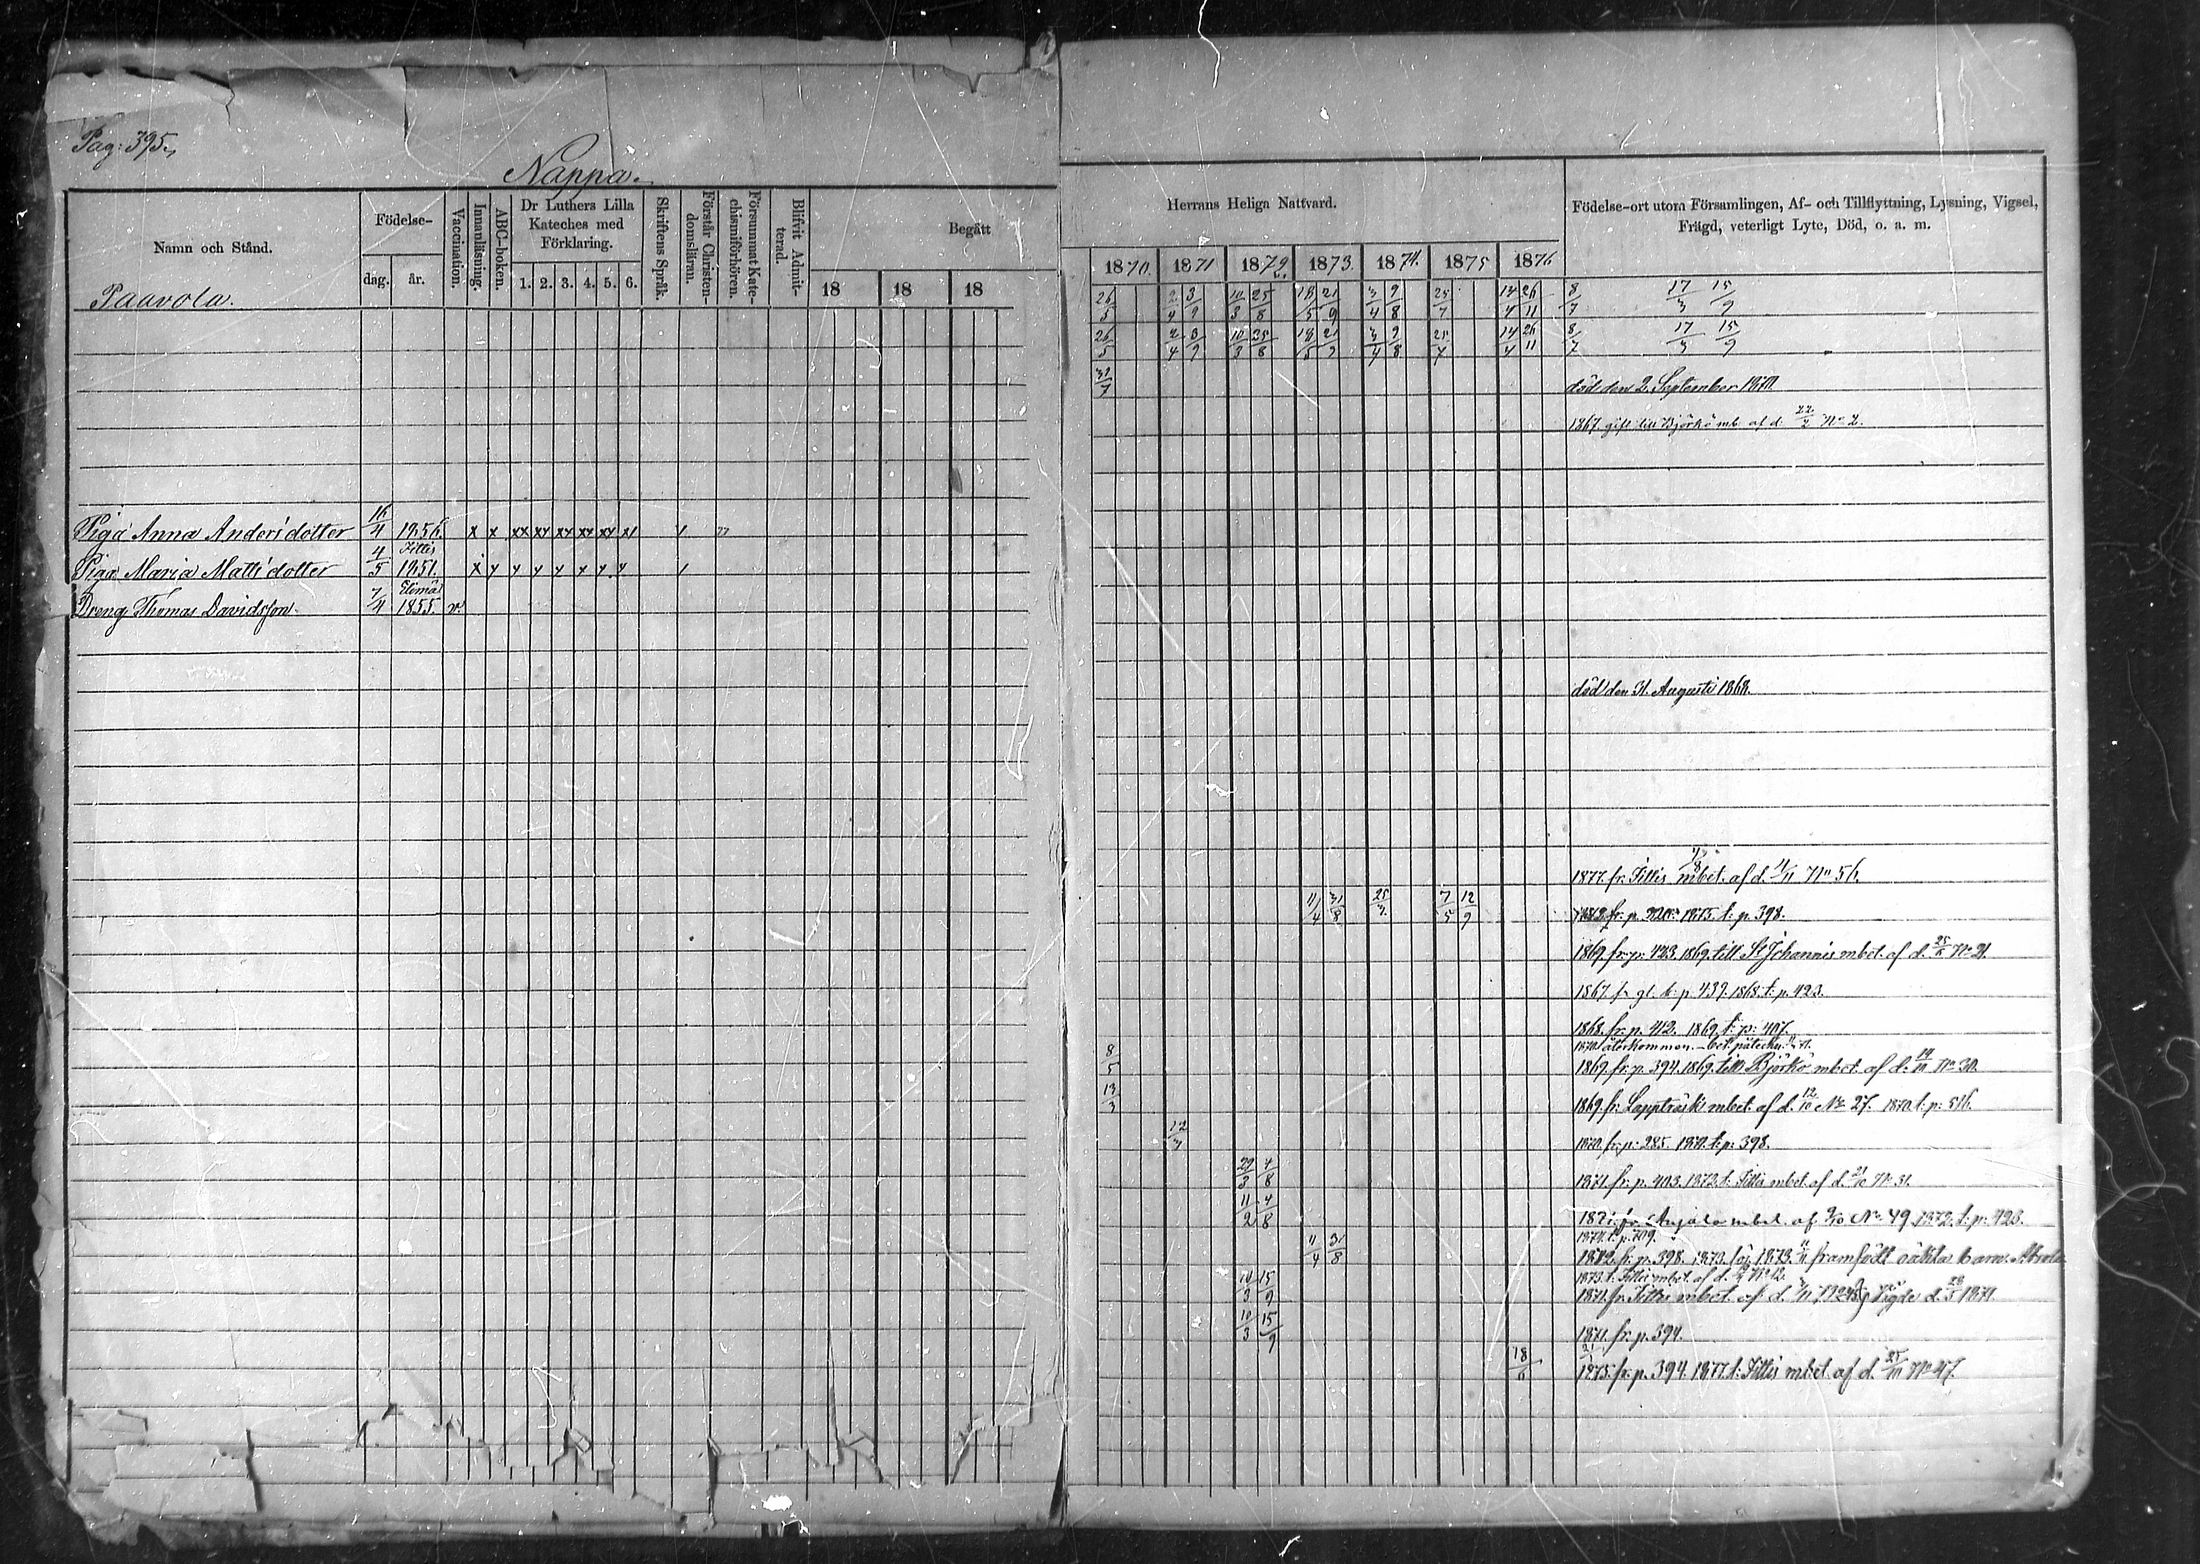 Pag: 395.
Nappa.
Namn och Stånd.
Paavola.
Födelse-
dag.
år.
Vaccination.
Innanläsning.
ABC-boken.
Dr Luthers Lilla
Kateches med
Förklaring.
1. 2. 3. 4. 5. 6.
Skriftens Språk.
Förstår Christen-
domsläran.
Försummat Kate-
chismiförhören.
Blifvit Admit-
terad.
Begått
18 18 18
Piga Anna Andersdotter 16/4 1856. x x xx xy xy xy xy x1 1
Fittis
Piga Maria Mattsdotter 4/5 1851. x y y y y y y y 1
Elimä
Dreng Thomas Davidsson 7/4 1855 v
Herrans Heliga Nattvard.
1870. 1871 1872. 1873. 1874. 1875 1876
Födelse-ort utom Församlingen, Af- och Tillflyttning, Lysning, Vigsel,
Frägd, veterligt Lyte, Död, o. a. m.
26/5 2/4 3/9 10/3 25/8 18/5 21/9 3/4 9/8 25/7 14/4 26/11 8/7 17/3 15/9
26/5 2/4 3/9 10/3 25/8 18/5 21/9 3/4 9/8 25/7 14/4 26/11 8/7 17/3 15/9
31/7 död den 2. September 1870
1867 gift till Björkö mb. af d. 22/2 No 2.
död den 31. Augusti 1868.
1877. fr. Fittis mbet. af d. 1/11 No 56.
11/4 31/8 25/3 7/5 12/9 fr. p. 1875. t. p. 398.
1869 fr. p. 423. 1869. till St Johannis mbet. af d. 25/5 No 21.
1867. fr gl. b. p 439. 1868. t. p. 423.
1868. fr. p. 412. 1869. t: p: 407.
1870. återkommen. - bet. påteckn.
8/5 1869. fr. p. 394. 1869. till Björkö mbet. af d. 14/10 No 30.
13/3 1869. fr. Lappträsk mbet. af d. 12/10 No 27. 1870. t. p: 516.
12/3 1870. fr. p: 285. 1871. t: p: 398.
29/3 4/8 1871. fr. p. 403. 1872. t. Fittis mbet. af d. 21/10 No 31.
11/2 4/8 1871. fr. Anjala mbet. af 9/10 No 49. 1972. t. p: 423.
1874. t. p. 709.
11/4 31/8 1872. fr. p. 398. 1873. 1873. 11/11 framfödt oäkta barn
1873. t. Fittis mbet. af d. No 12.
10/3 15/9 1871. fr. Fittis mbet. af d. Vigde d. 28/5 1871.
10/3 15/9 1871. fr. p. 394.
18/6 1875. fr. p. 394. 1877. t. Fittis mbet. af d. 25/10 No 47.